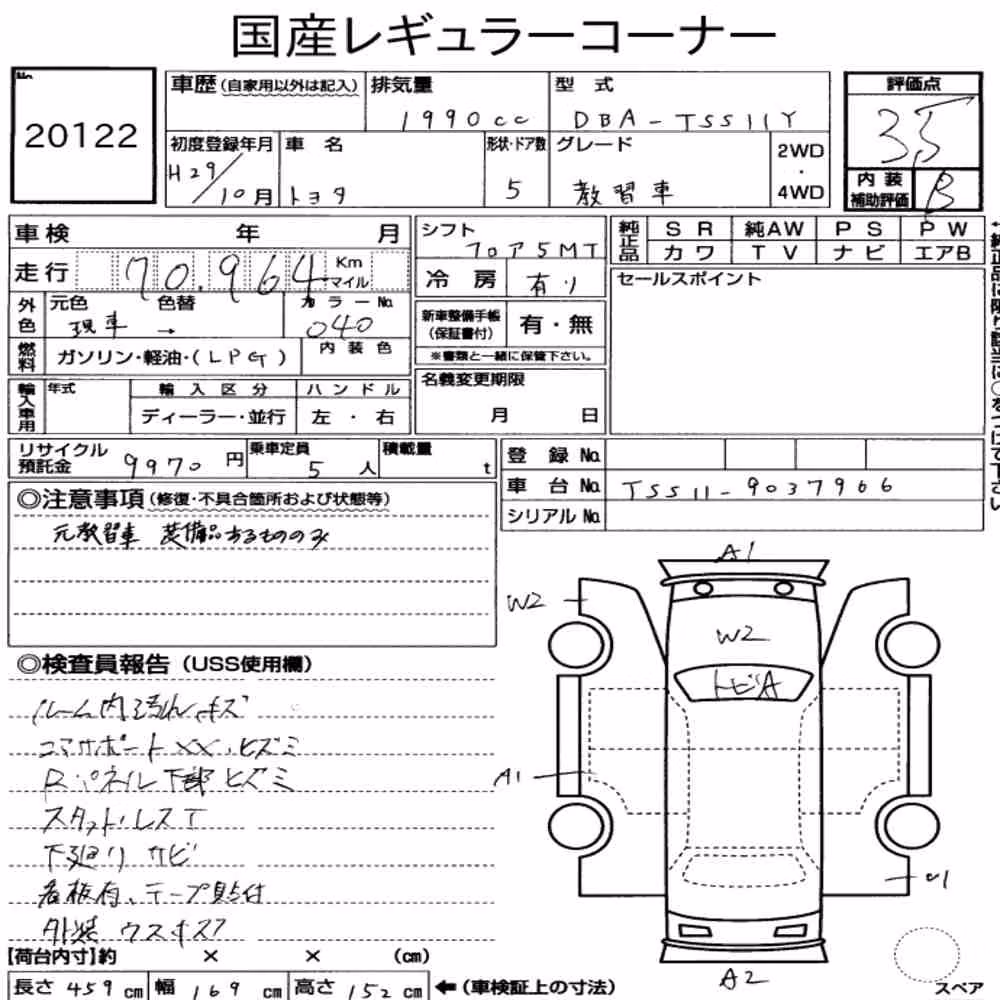 国産レギュラーコーナー
No.
20122
車歴(自家用以外は記入)
排気量
1990cc
型 式
DBA-TSS11Y
評価点
3.5
初度登録年月
H29/10月
車 名
トヨタ
形状・ドア数
5
グレード
教習車
2WD
・
4WD
内装補助評価
B
車検 年 月
走行 70,964 Km マイル
シフト
フロア5MT
純正品
SR 純AW PS PW
カワ TV ナビ エアB
冷房 有り
セールスポイント
外色
元色 色替
現車 →
カラーNo.
040
新車整備手帳
(保証書付)
有・無
※書類と一緒に保管下さい。
燃料
ガソリン・軽油・(LPG)
内装色
輸入車用
年式
輸入区分
ディーラー・並行
ハンドル
左 ・ 右
名義変更期限
月 日
リサイクル預託金 9970円
乗車定員
5人
積載量
t
登録No.
車台No. TSS11-9037966
シリアルNo.
◎注意事項(修復・不具合箇所および状態等)
元教習車 装備品あるもののみ
◎検査員報告(USS使用欄)
ルーム内汚れ、キズ
コアサポートXX、ヒズミ
Rパネル下部ヒズミ
スタットレスT
下廻りサビ
看板有、テープ貼付
外装 ウスキズ
A1
W2
W2
トビA
A1
U1
A2
スペア
【荷台内寸】約 × × (cm)
長さ 459cm 幅 169cm 高さ 152cm ←(車検証上の寸法)